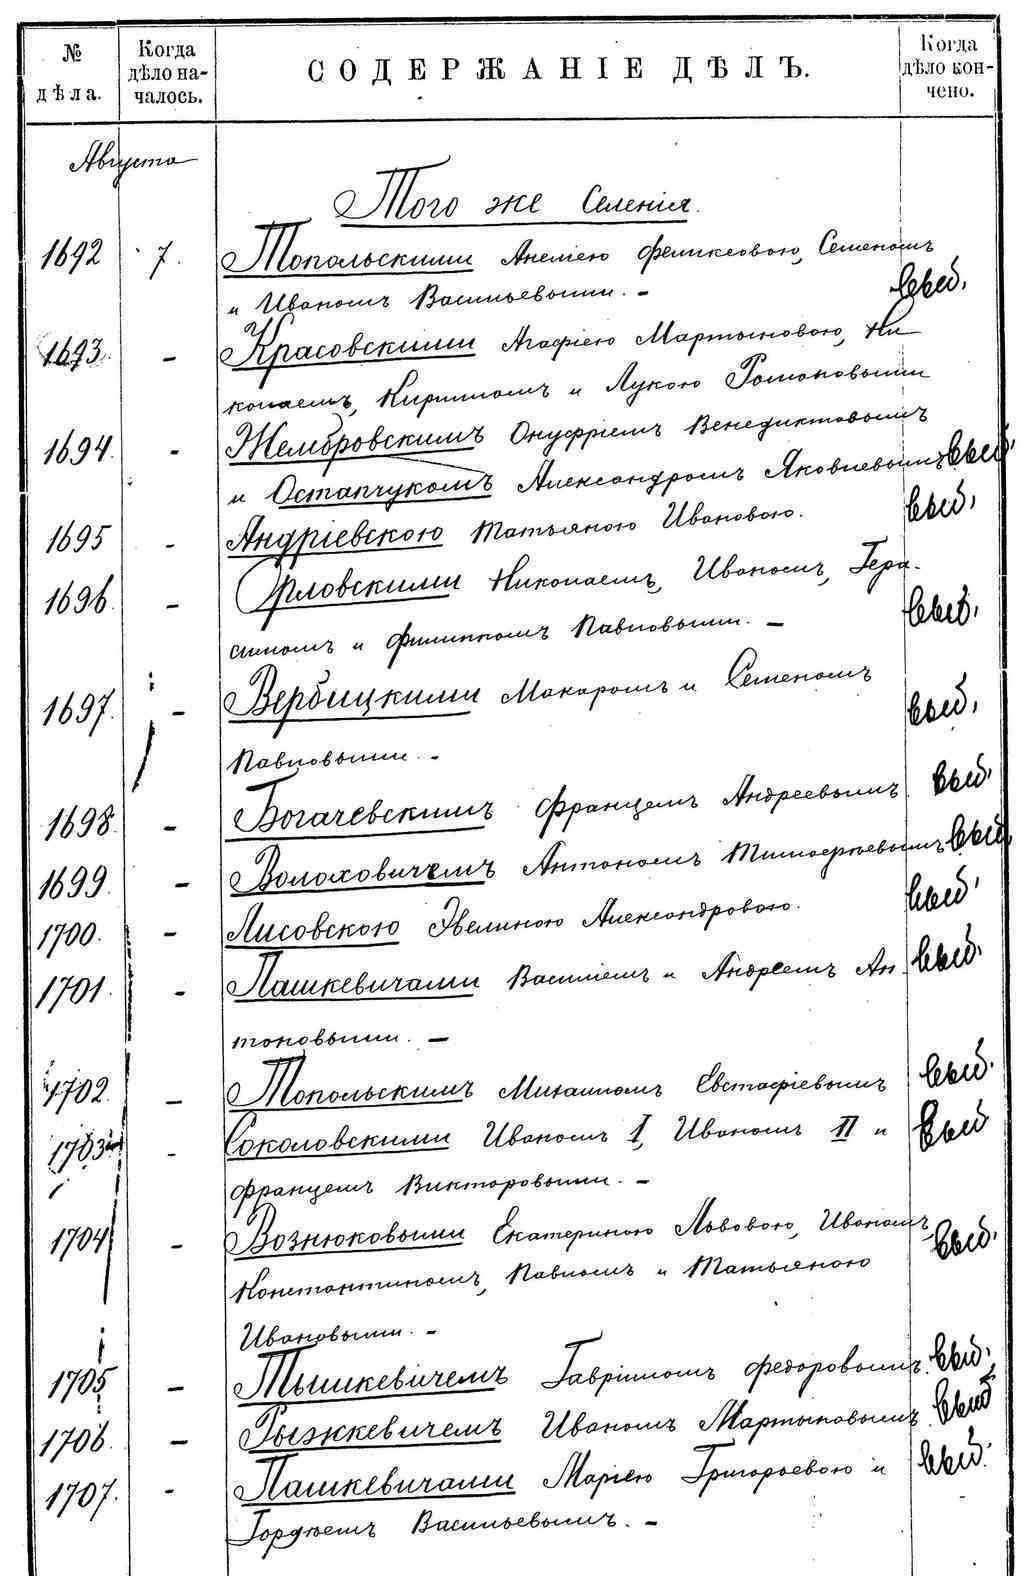 № дѣла.
Когда дѣло на-
чалось.
СОДЕРЖАНІЕ ДѢЛЪ.
Когда дѣло кон-
чено.
Августа
Того же Селенія.
1692 7. Топольскими Анелією Феликсовою, Семеномъ
и Иваномъ Васильевыми. – выб.
1693. – Красовскими Агафією Мартыновою, Ни-
колаемъ, Кириломъ и Лукою Романовыми
1694. – Жембровскимъ Онуфріемъ Венедиктовымъ
и Остапчукомъ Александромъ Яковлевымъ выб.
1695 – Андріевскою Татьяною Ивановою. выб.
1696. – Орловскими Николаемъ, Иваномъ, Гера-
симомъ и Филиппомъ Павловыми. – выб.
1697. – Вербицкими Макаромъ и Семеномъ выб.
Павловыми. –
1698. – Богачевскимъ Францемъ Андреевымъ выб.
1699. – Волоховичемъ Антономъ Тимофѣевымъ выб.
1700. – Лисовскою Эвелиною Александровою. выб.
1701. – Пашкевичами Василіемъ и Андреемъ Ан- выб.
тоновыми. –
1702. – Топольскимъ Михаиломъ Евстафіевымъ выб.
1703 – Соколовскими Иваномъ I, Иваномъ II и выб
Францемъ Викторовыми. –
1704 – Вознюковыми Екатериною Львовою, Иваномъ, выб.
Константиномъ, Павломъ и Татьяною
Ивановыми. –
1705 – Тышкевичемъ Гавріиломъ Федоровымъ. выб.
1706. – Рыжкевичемъ Иваномъ Мартыновымъ. выб
1707. – Пашкевичами Марією Григорьевою и выб.
Гордѣемъ Васильевымъ. –